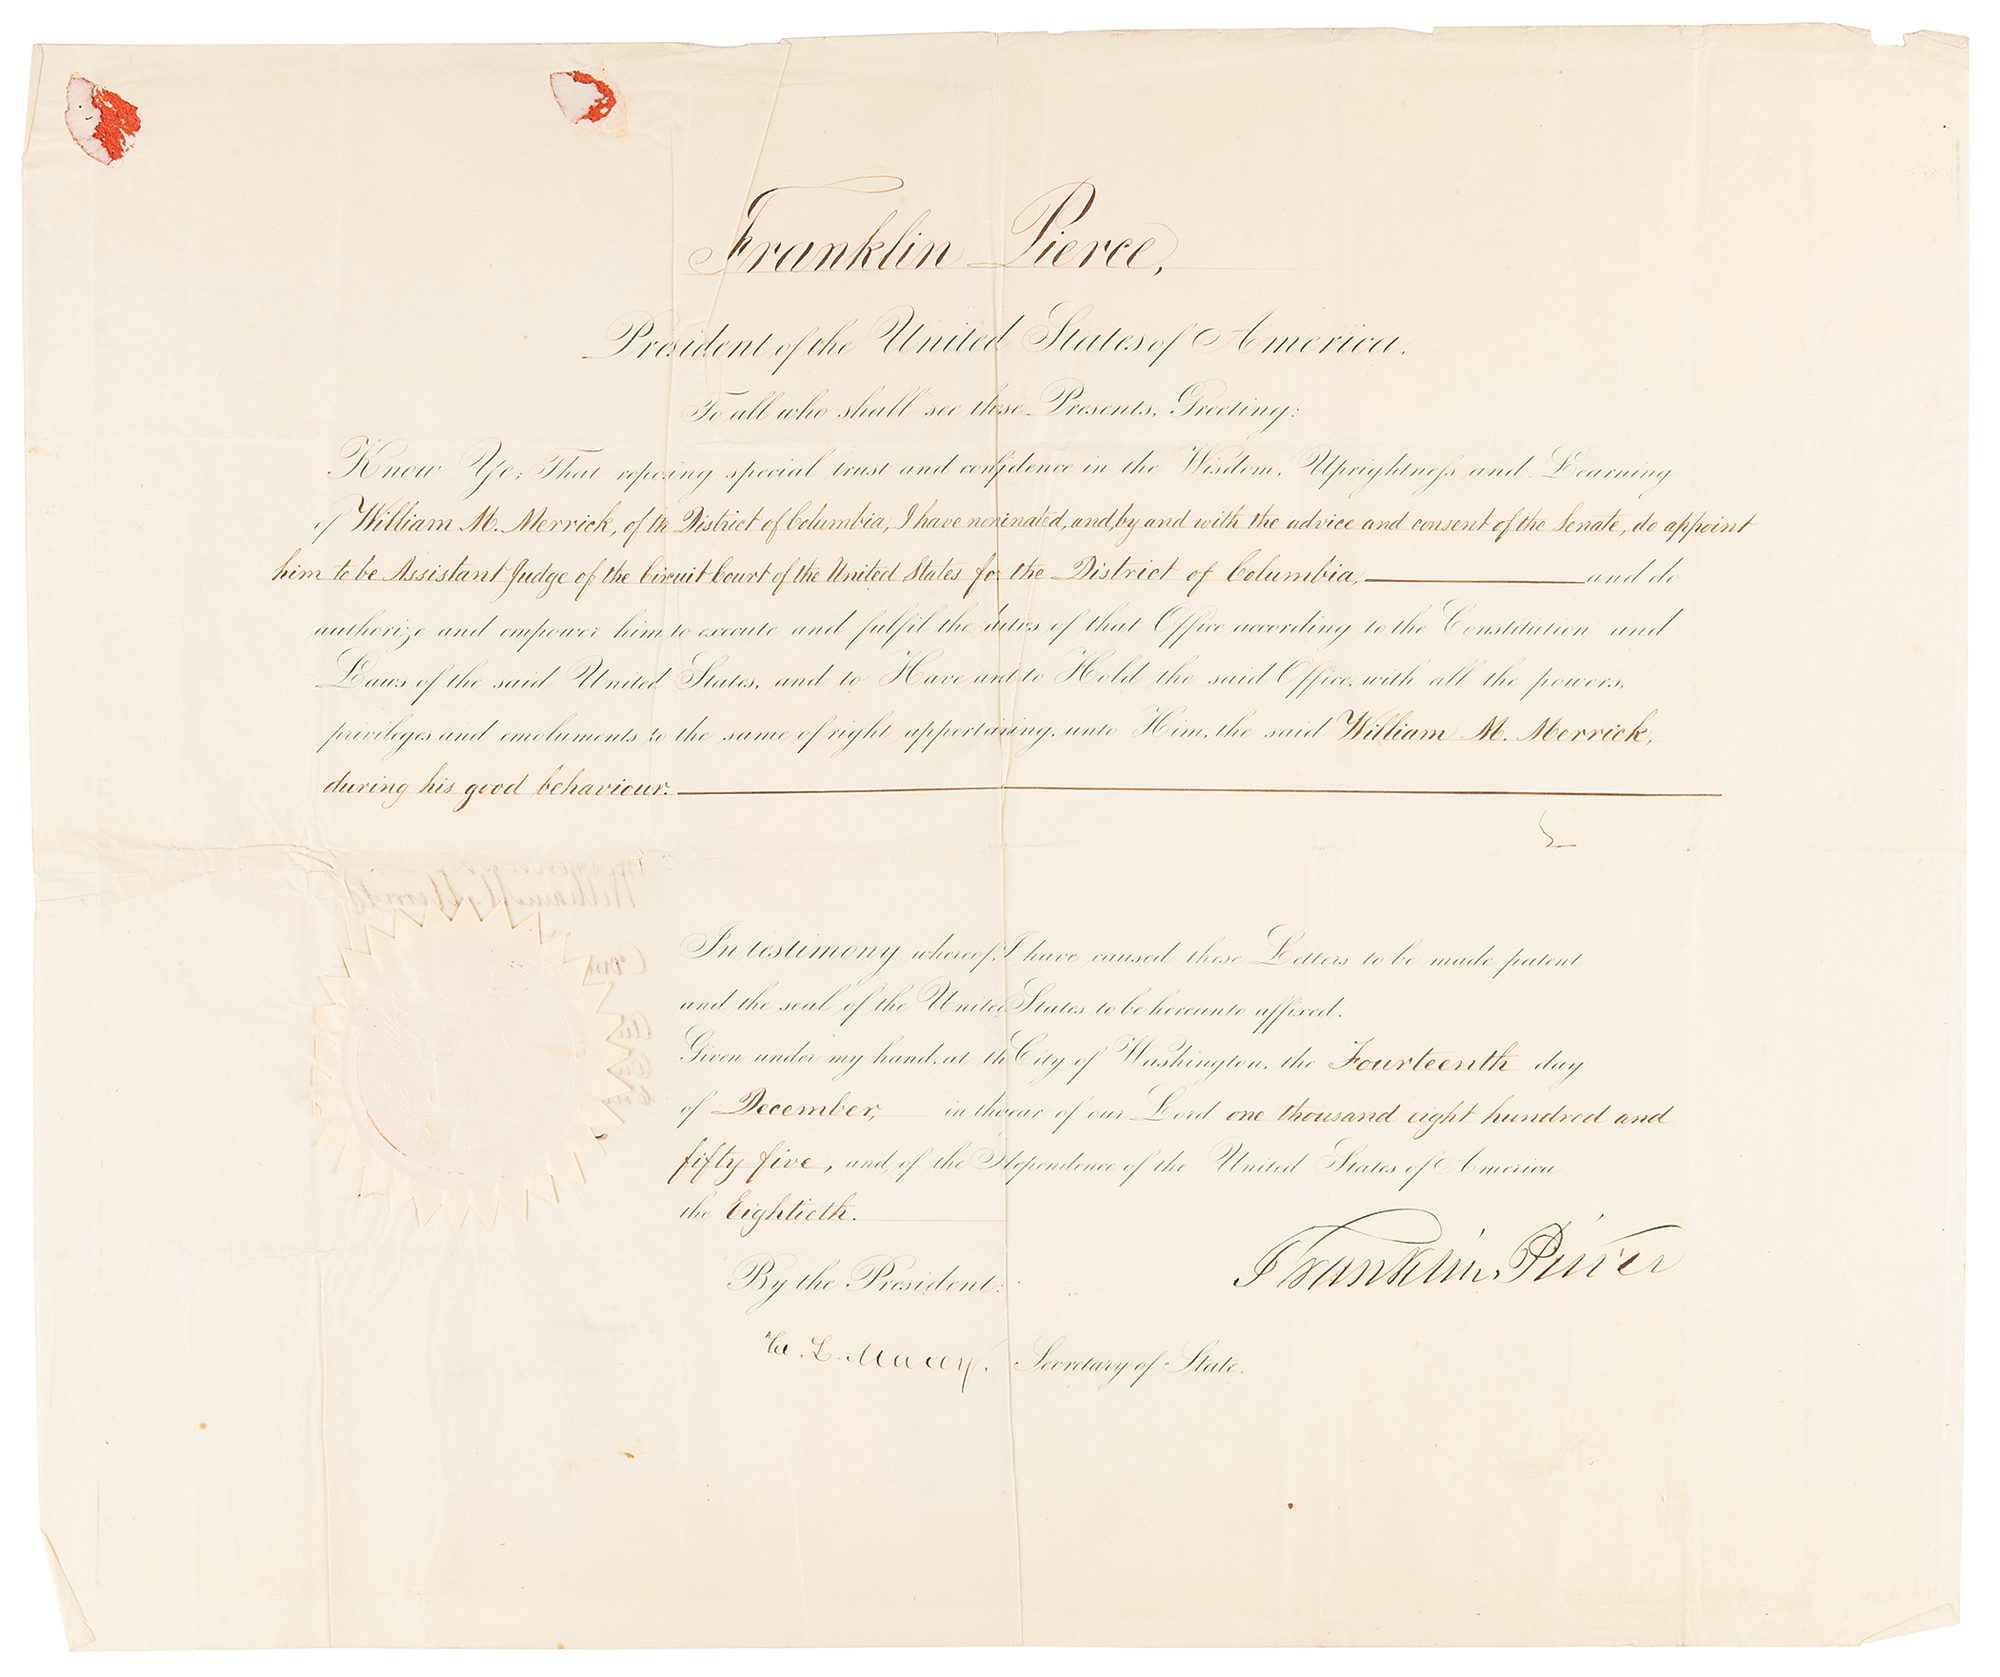 Franklin Pierce,
President of the United States of America.
To all who shall see these Presents, Greeting:
Know Ye; That reposing special trust and confidence in the Wisdom, Uprightness and Learning
of William M. Merrick, of the District of Columbia, I have nominated, and, by and with the advice and consent of the Senate, do appoint
him to be Assistant Judge of the Circuit Court of the United States for the District of Columbia, and do
authorize and empower him to execute and fulfil the duties of that Office according to the Constitution and
Laws of the said United States, and to Have and to Hold the said Office, with all the powers,
privileges and emoluments to the same of right appertaining, unto Him, the said William M. Merrick,
during his good behaviour.
In testimony whereof, I have caused these Letters to be made patent
and the seal of the United States to be hereunto affixed.
Given under my hand, at the City of Washington, the Fourteenth day
of December, in the year of our Lord one thousand eight hundred and
fifty-five, and, of the Independence of the United States of America
the Eightieth.
Franklin Pierce
By the President:
W. L. Marcy. Secretary of State.